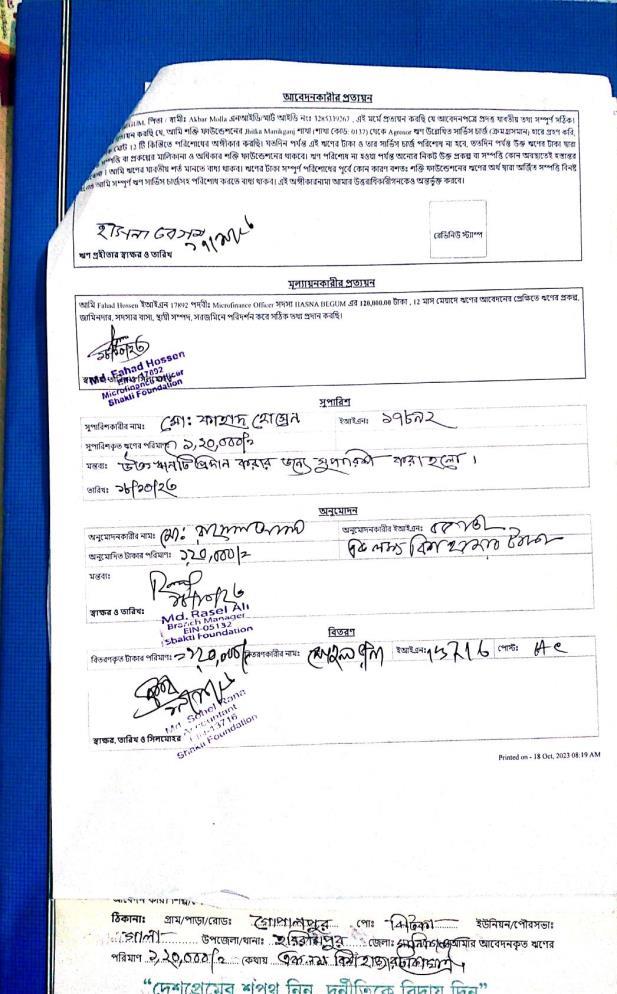 আবেদনকারীর প্রত্যয়ন
BEGUM, পিতা / স্বামী: Akbar Molla এনআইডি/স্মার্ট আইডি নং: 3285339263 , এই মর্মে প্রত্যয়ন করছি যে আবেদনপত্রে প্রদত্ত যাবতীয় তথ্য সম্পূর্ণ সঠিক।
করছি যে, আমি শক্তি ফাউন্ডেশনের Jhitka Manikganj শাখা (শাখা কোড: 0137) থেকে Agrosor ঋণ উল্লেখিত সার্ভিস চার্জ (ক্রমহ্রাসমান) হারে গ্রহণ করি,
মোট 12 টি কিস্তিতে পরিশোধের অঙ্গীকার করছি। যতদিন পর্যন্ত এই ঋণের টাকা ও তার সার্ভিস চার্জ পরিশোধ না হবে, ততদিন পর্যন্ত উক্ত ঋণের টাকা দ্বারা
বা প্রকল্পের মালিকানা ও অধিকার শক্তি ফাউন্ডেশনের থাকবে। ঋণ পরিশোধ না হওয়া পর্যন্ত অন্যের নিকট উক্ত প্রকল্প বা সম্পত্তি কোন অবস্থাতেই হস্তান্তর
। আমি ঋণের যাবতীয় শর্ত মানতে বাধ্য থাকব। ঋণের টাকা সম্পূর্ণ পরিশোধের পূর্বে কোন কারণ বশতঃ শক্তি ফাউন্ডেশনের ঋণের অর্থ দ্বারা অর্জিত সম্পত্তি বিনষ্ট
আমি সম্পূর্ণ ঋণ সার্ভিস চার্জসহ পরিশোধ করতে বাধ্য থাকব। এই অঙ্গীকারনামা আমার উত্তরাধিকারীগনকেও অন্তর্ভুক্ত করবে।
হাসনা বেগম
রেভিনিউ স্ট্যাম্প
ঋণ গ্রহীতার স্বাক্ষর ও তারিখ
মূল্যায়নকারীর প্রত্যয়ন
আমি Fahad Hossen ইআইএন 17892 পদবীঃ Microfinance Officer সদস্য HASNA BEGUM এর 120,000.00 টাকা , 12 মাস মেয়াদে ঋণের আবেদনের প্রেক্ষিতে ঋণের প্রকল্প,
জামিনদার, সদস্যর বাসা, স্থায়ী সম্পদ, সরজমিনে পরিদর্শন করে সঠিক তথ্য প্রদান করছি।
১৮/১০/২৩
Md. Fahad Hossen
EIN-17892
Microfinance Officer
Shakti Foundation
সুপারিশ
সুপারিশকারীর নাম: মো: ফাহাদ হোসেন ইআইএন: ১৭৮৯২
সুপারিশকৃত ঋণের পরিমাণ: ১,২০,০০০/=
মন্তব্য: উক্ত ঋনটি প্রদান করার জন্যে সুপারিশ করা হলো।
তারিখ: ১৮/১০/২৩
অনুমোদন
অনুমোদনকারীর নাম: মো: অনুমোদনকারীর ইআইএন:
অনুমোদিত টাকার পরিমাণ: ১২০,০০০/= এক লক্ষ বিশ হাজার টাকা
মন্তব্য:
১৮/১০/২৩
স্বাক্ষর ও তারিখ:
Md. Rasel Ali
Branch Manager
EIN-05132
Shakti Foundation
বিতরণ
বিতরণকৃত টাকার পরিমাণ: ১২০,০০০/= বিতরণকারীর নাম: ইআইএন: ১৩716 পোস্ট: Ac
স্বাক্ষর, তারিখ ও সিলমোহর
Md. Sohel Rana
Accountant
EIN-13716
Shakti Foundation
Printed on - 18 Oct, 2023 08:19 AM
ঠিকানা: গ্রাম/পাড়া/রোড: গোপালপুর পো: ঝিটকা ইউনিয়ন/পৌরসভা:
গালা উপজেলা/থানা: হরিরামপুর জেলা: মানিকগঞ্জ আমার আবেদনকৃত ঋণের
পরিমাণ ১,২০,০০০/= কেথায় এক লক্ষ বিশ হাজার টাকা মাত্র।
“দেশপ্রেমের শপথ নিন, দুর্নীতিকে বিদায় দিন”